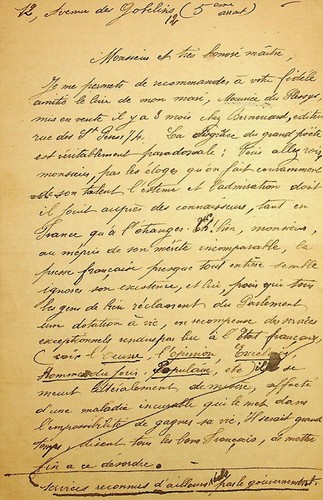 12, Avenue des Gobelins, 12 (5ème arrat)
Monsieur et très honoré maître,
Je me permets de recommander à votre fidèle
amitié le livre de mon mari, Maurice du Plessys,
mis en vente il y a 8 mois chez Bernouard, éditeur
rue des Sts Pères 74. La disgrâce du grand poète
est véritablement paradoxale! Vous allez voir,
monsieur, par les éloges qu'on fait couramment
de son talent l'estime et l'admiration dont
il jouit auprès des connaisseurs, tant en
France qu'à l'étranger. Eh bien, monsieur,
au mépris de son mérite incomparable, la
presse française presque tout entière semble
ignorer son existence, et lui, pour qui tous
les gens de bien réclament du Parlement
une dotation à vie, en récompense des services
exceptionnels rendus par lui à l'Etat français,
(voir l'Oeuvre, l'Opinion, Excelsior,
Homme du jour, Populaire, etc) il se
meurt littéralement de misère, affecté
d'une maladie incurable qui le met dans
l'impossibilité de gagner sa vie. Il serait grand
temps, disent tous les bons Français, de mettre
fin à ce désordre.
Services reconnus d'ailleurs par le gouvernement.